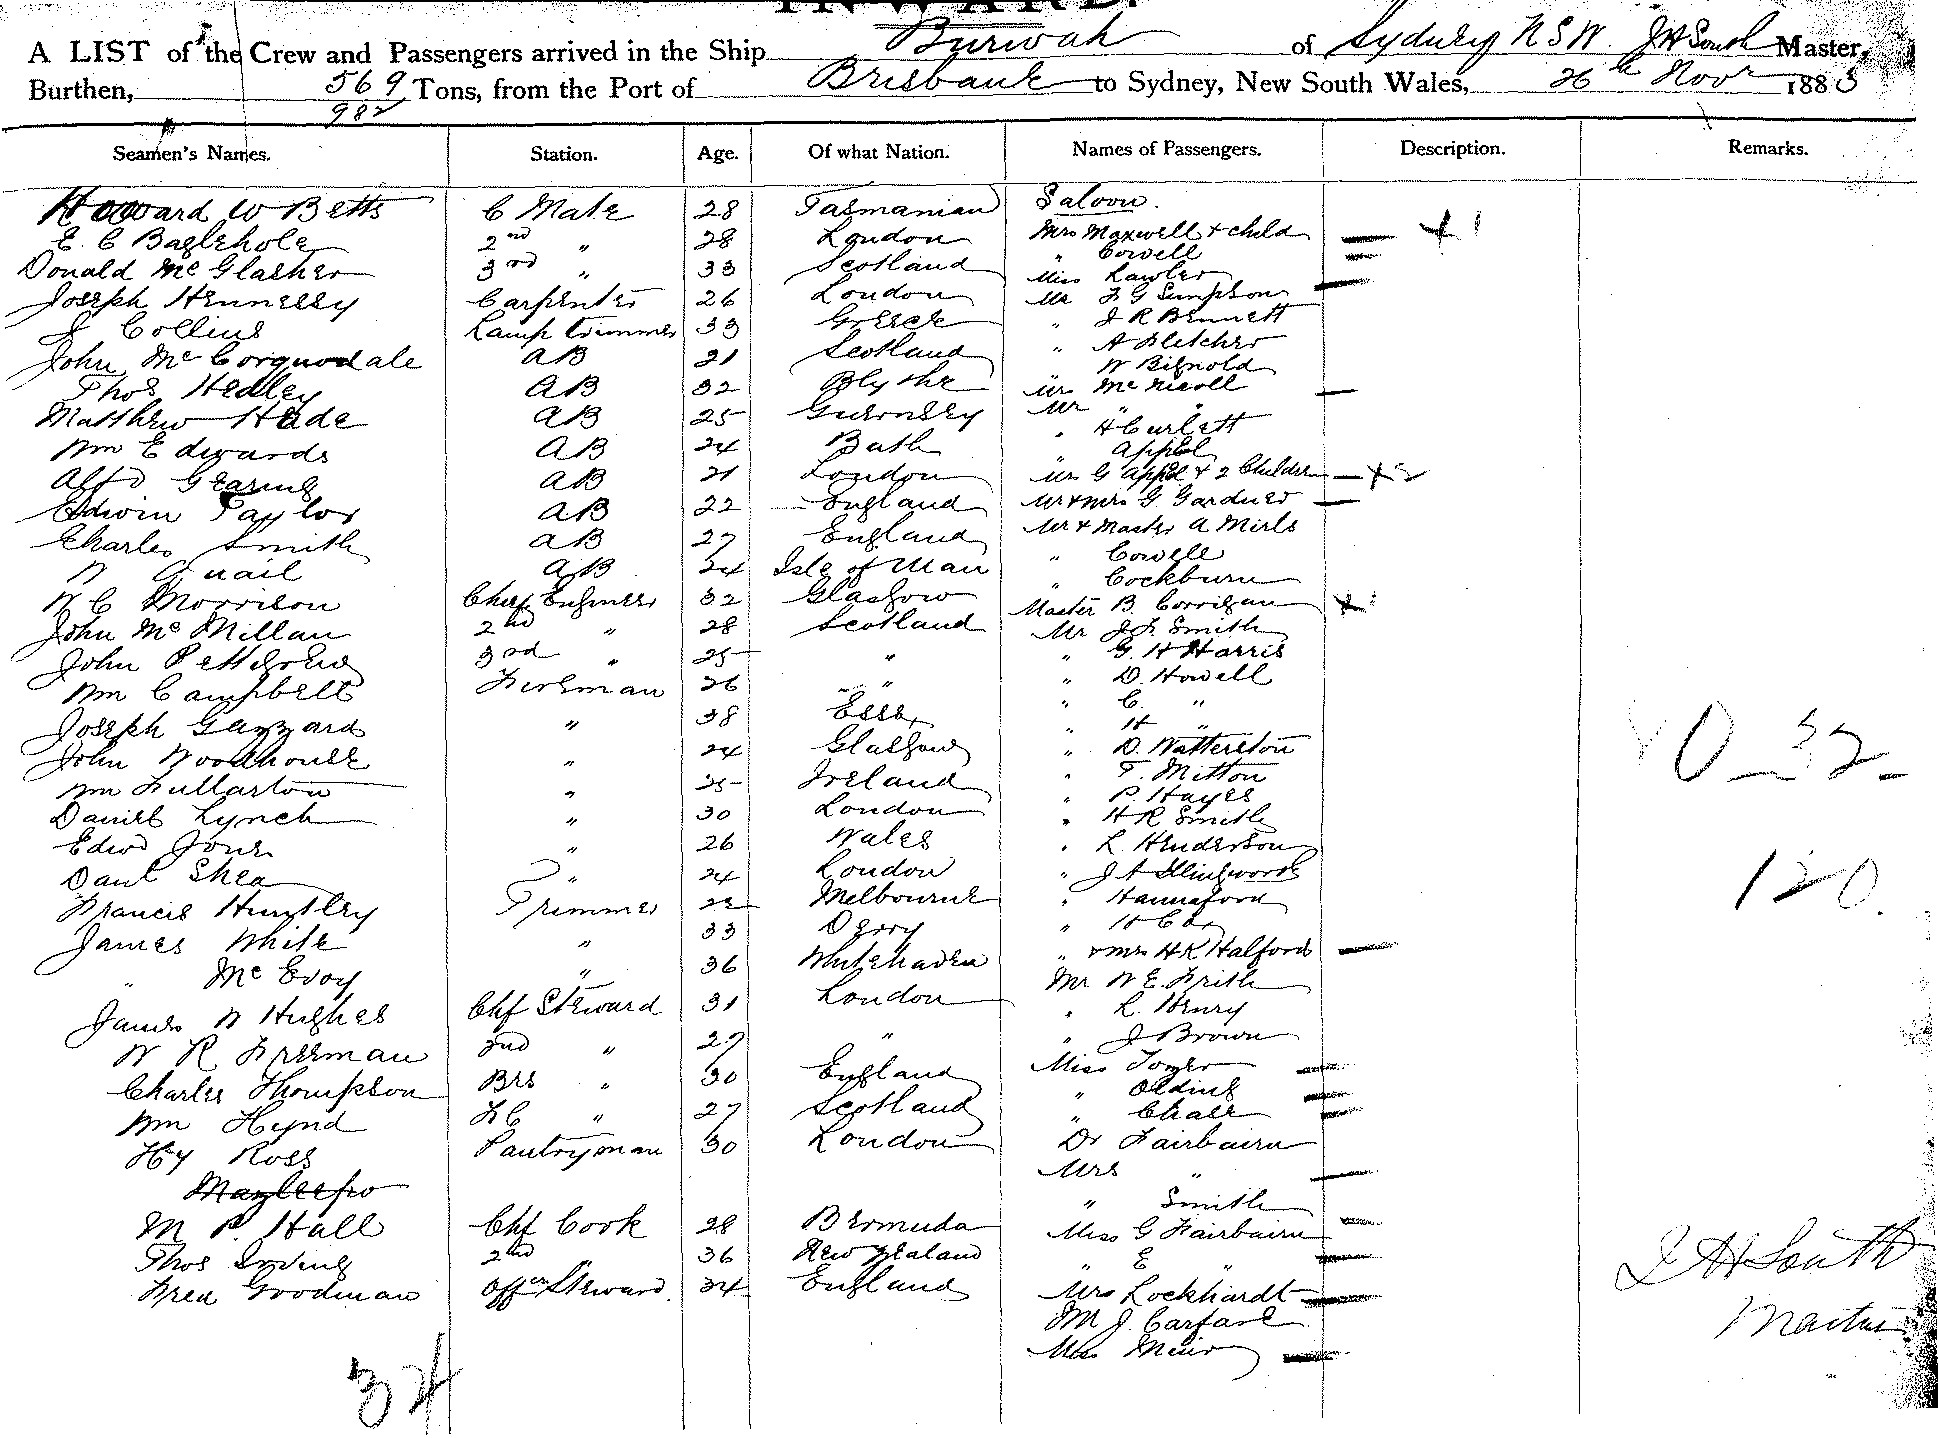 INWARD.
A LIST of the Crew and Passengers arrived in the Ship Burwah of Sydney NSW J H South Master,
Burthen, 569 Tons, from the Port of Brisbane to Sydney, New South Wales, 26th Novr 1885
982
Seamen's Names. Station. Age. Of what Nation. Names of Passengers. Description. Remarks.
Howard W Betts C Mate 28 Tasmanian Saloon.
E. C Baglehole 2nd " 28 London Mrs Maxwell & child
" Cowell
Donald McGlasher 3rd " 33 Scotland Miss Lawler
Joseph Hennessy Carpenter 26 London Mr F G Simpson
J Collins Lamp trimmer 33 Greece " J R Bennett
John McCorquodale AB 21 Scotland " A Bletcher
W Bignold
Thos Hedley AB 32 Blythe Mrs McNicoll
Matthew Hade AB 25 Guernsey Mr " "
" H Curlett
Wm Edwards AB 24 Bath " Appel
Alfd Gearing AB 21 London Mrs G Appel & 2 Childern
Edwin Taylor AB 22 England Mr & Mrs G Gardner
Charles Smith AB 27 England Mr & Master A Mirls
" Cowell
W Quail AB 24 Isle of Man " Cockburn
W C Morrison Chief Engineer 32 Glasgow Master B. Corrigan
John McMillan 2nd " 28 Scotland Mr J F Smith
John Pettigrew 3rd " 25 " " G. H Harris
Wm Campbell Fireman 26 " " " D. Howell
" C. "
Joseph Gazzard " 38 Essex " H "
John Woodhouse " 24 Glasgow " D. Watterston
Wm Fullarton " 25 Ireland " T. Mitton
" P. Hayes
Daniel Lynch " 30 London " H R Smith
Edwd Jones " 26 Wales " L. Henderson
Danl Shea " 24 London " J A Illingworth
Francis Huntley Trimmer 22 Melbourne " Hannaford
James White " 33 Derry " H Cox
" McEvoy " 36 Whitehaven " & Mrs H R Halford
Mr W E. Frith
James W Hughes Chf Steward 31 London " L. Henry
W R Freeman 2nd " 27 " " J Brown
Charles Thompson BRS " 30 England Miss Tozer
" Olding
Wm Hynd FC " 27 Scotland " Chale
Hy Ross Pantryman 30 London Dr Fairbairn
Mrs "
" Smith
M P. Hall Chf Cook 28 Bermuda Miss G Fairbairn
Thos Irving 2nd " 36 New Zealand " E "
Fred Goodman Offrs Steward 34 England Mrs Lockhardt
Mr J. Carfare
Miss Muir
34
32
120
J H South
Master